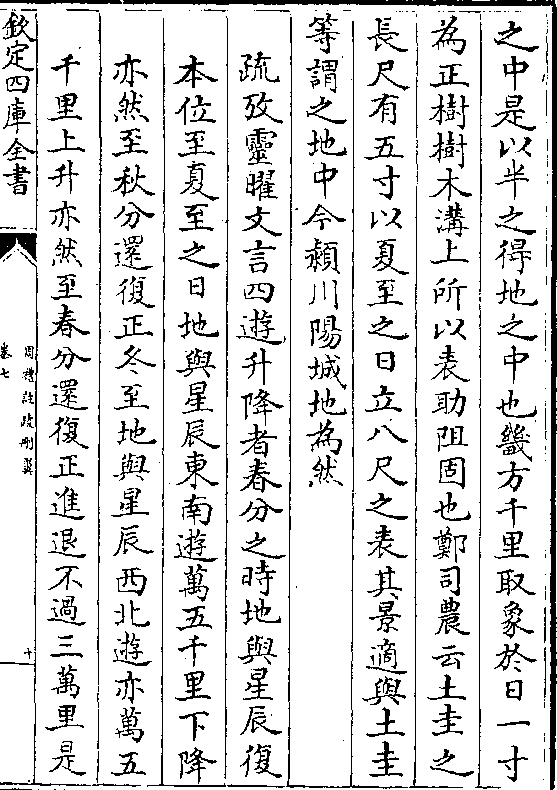 之中是以半之得地之中也畿方千里取象於日一寸
為正樹樹木溝上所以表助阻固也鄭司農云土圭之
長尺有五寸以夏至之日立八尺之表其景適與土圭
等謂之地中今潁川陽城地為然
疏攷靈曜文言四遊升降者春分之時地與星辰復
本位至夏至之日地與星辰東南遊萬五千里下降
亦然至秋分還復正冬至地與星辰西北遊亦萬五
千里上升亦然至春分還復正進退不過三萬里是
欽定四庫全書
周禮註疏刪翼
卷七
十